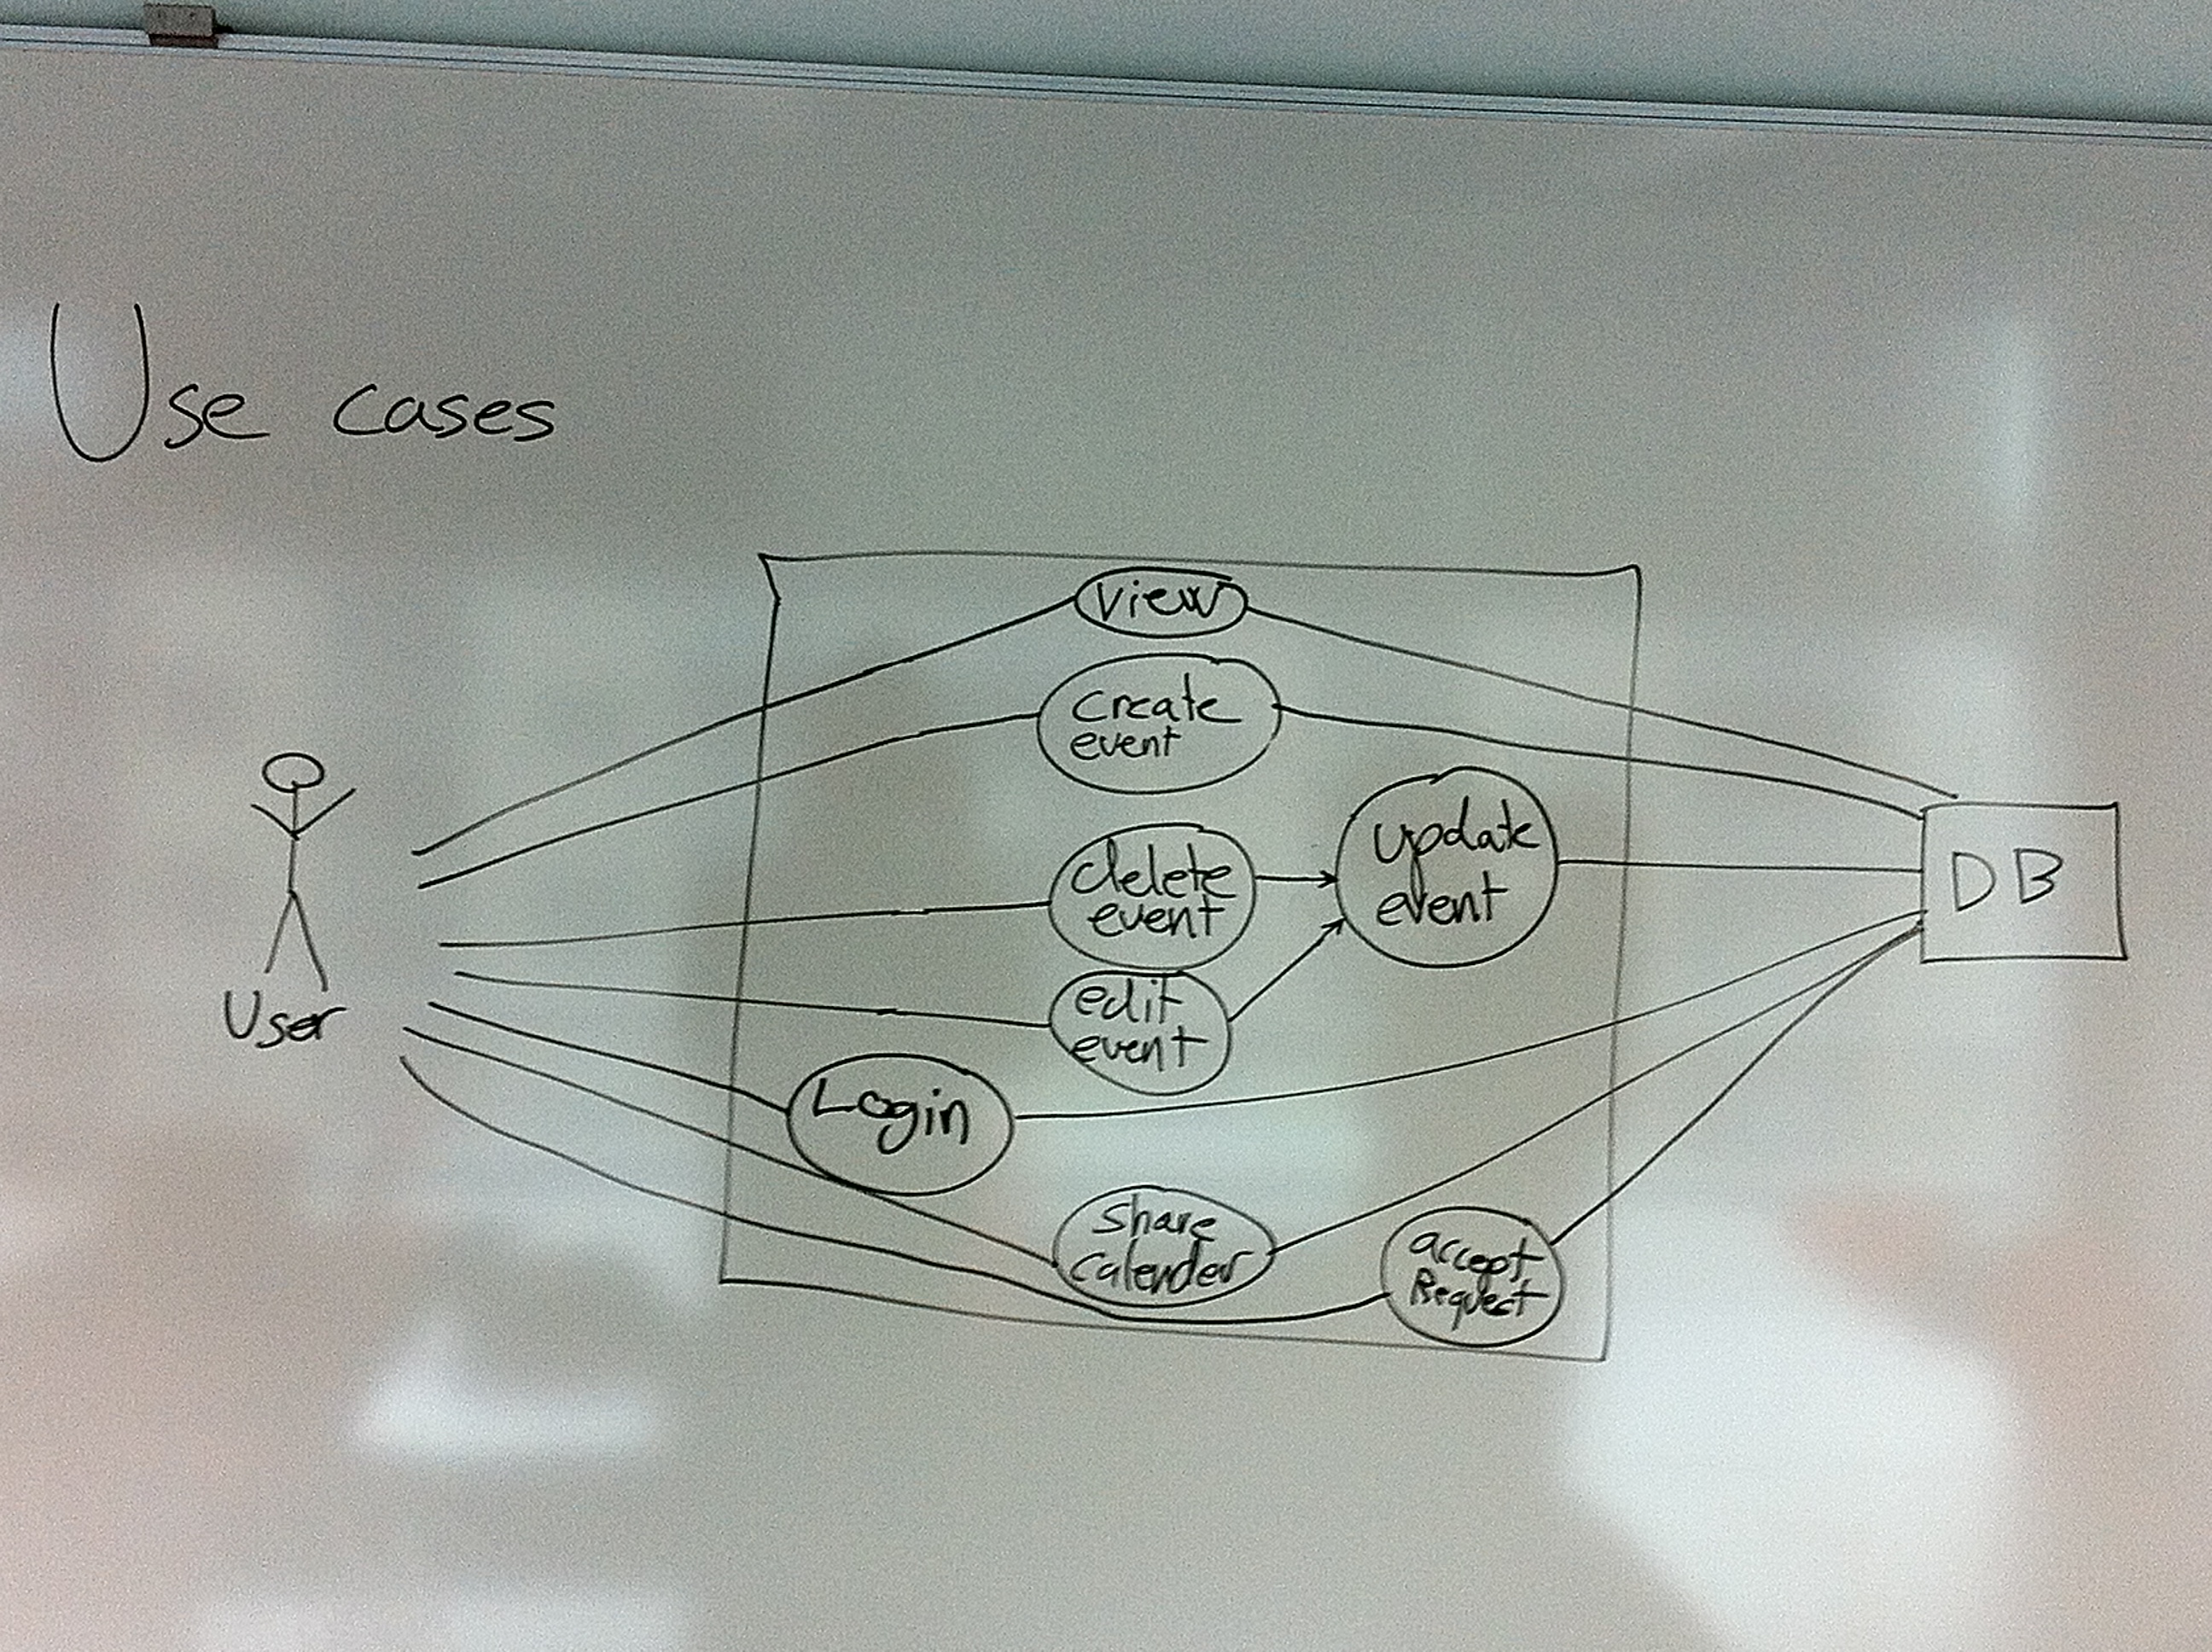 Use cases
view
create
event
delete
event
update
event
DB
edit
event
User
Login
Share
Calender
accept
Request